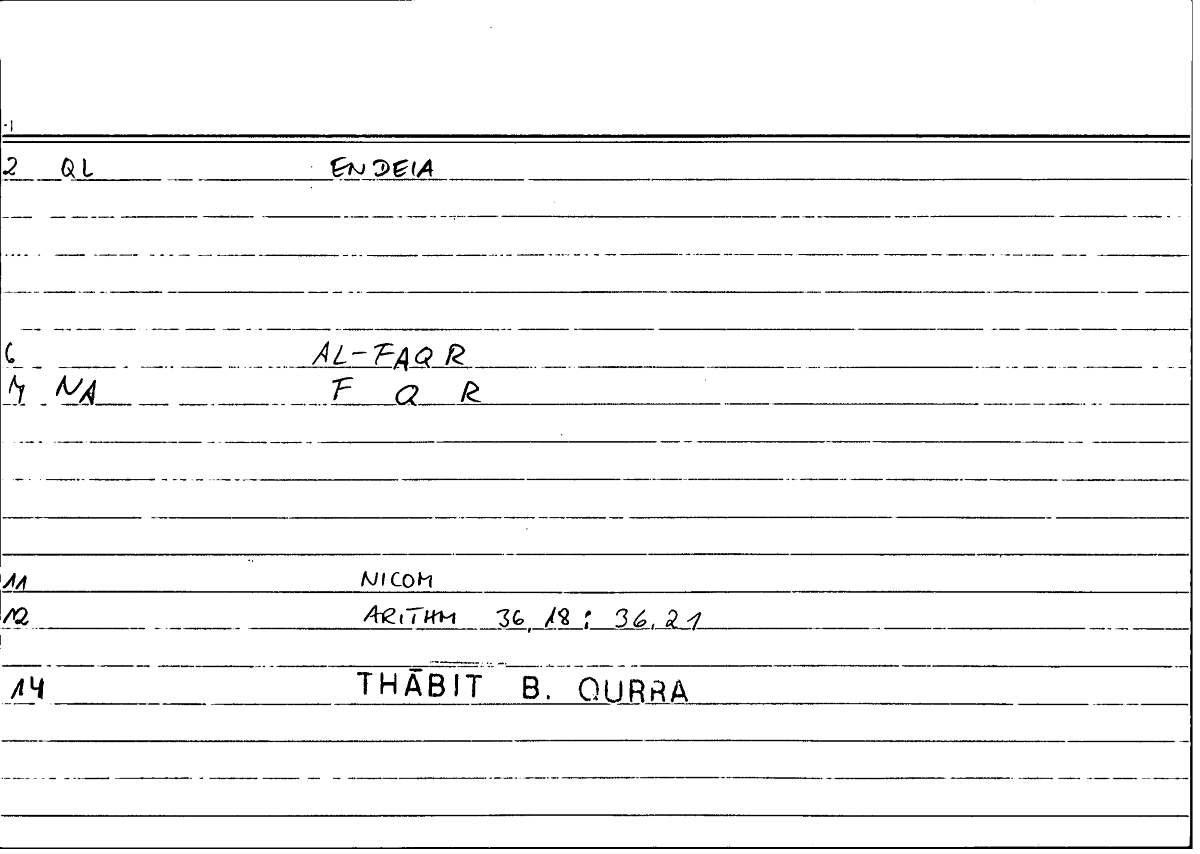 2 QL ENDEIA
6 AL-FAQR
7 NA F Q R
11 NICOM
12 ARITHM 36,18; 36.21
14 THĀBIT B. QURRA